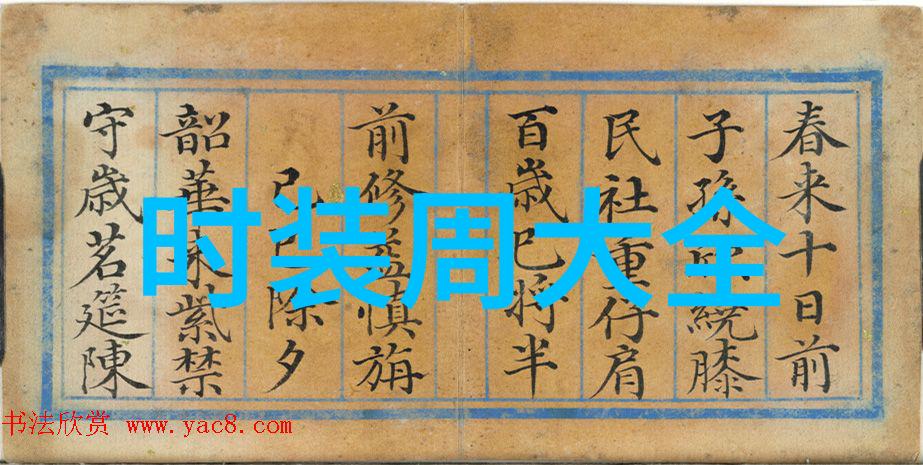 春来十日前
子孫繞膝
民社重仔肩
百歳已将半
前修益慎旃
己巳除夕
韶華来紫禁
守歳茗筵陳
时装周大全
书法欣赏 www.yac8.com